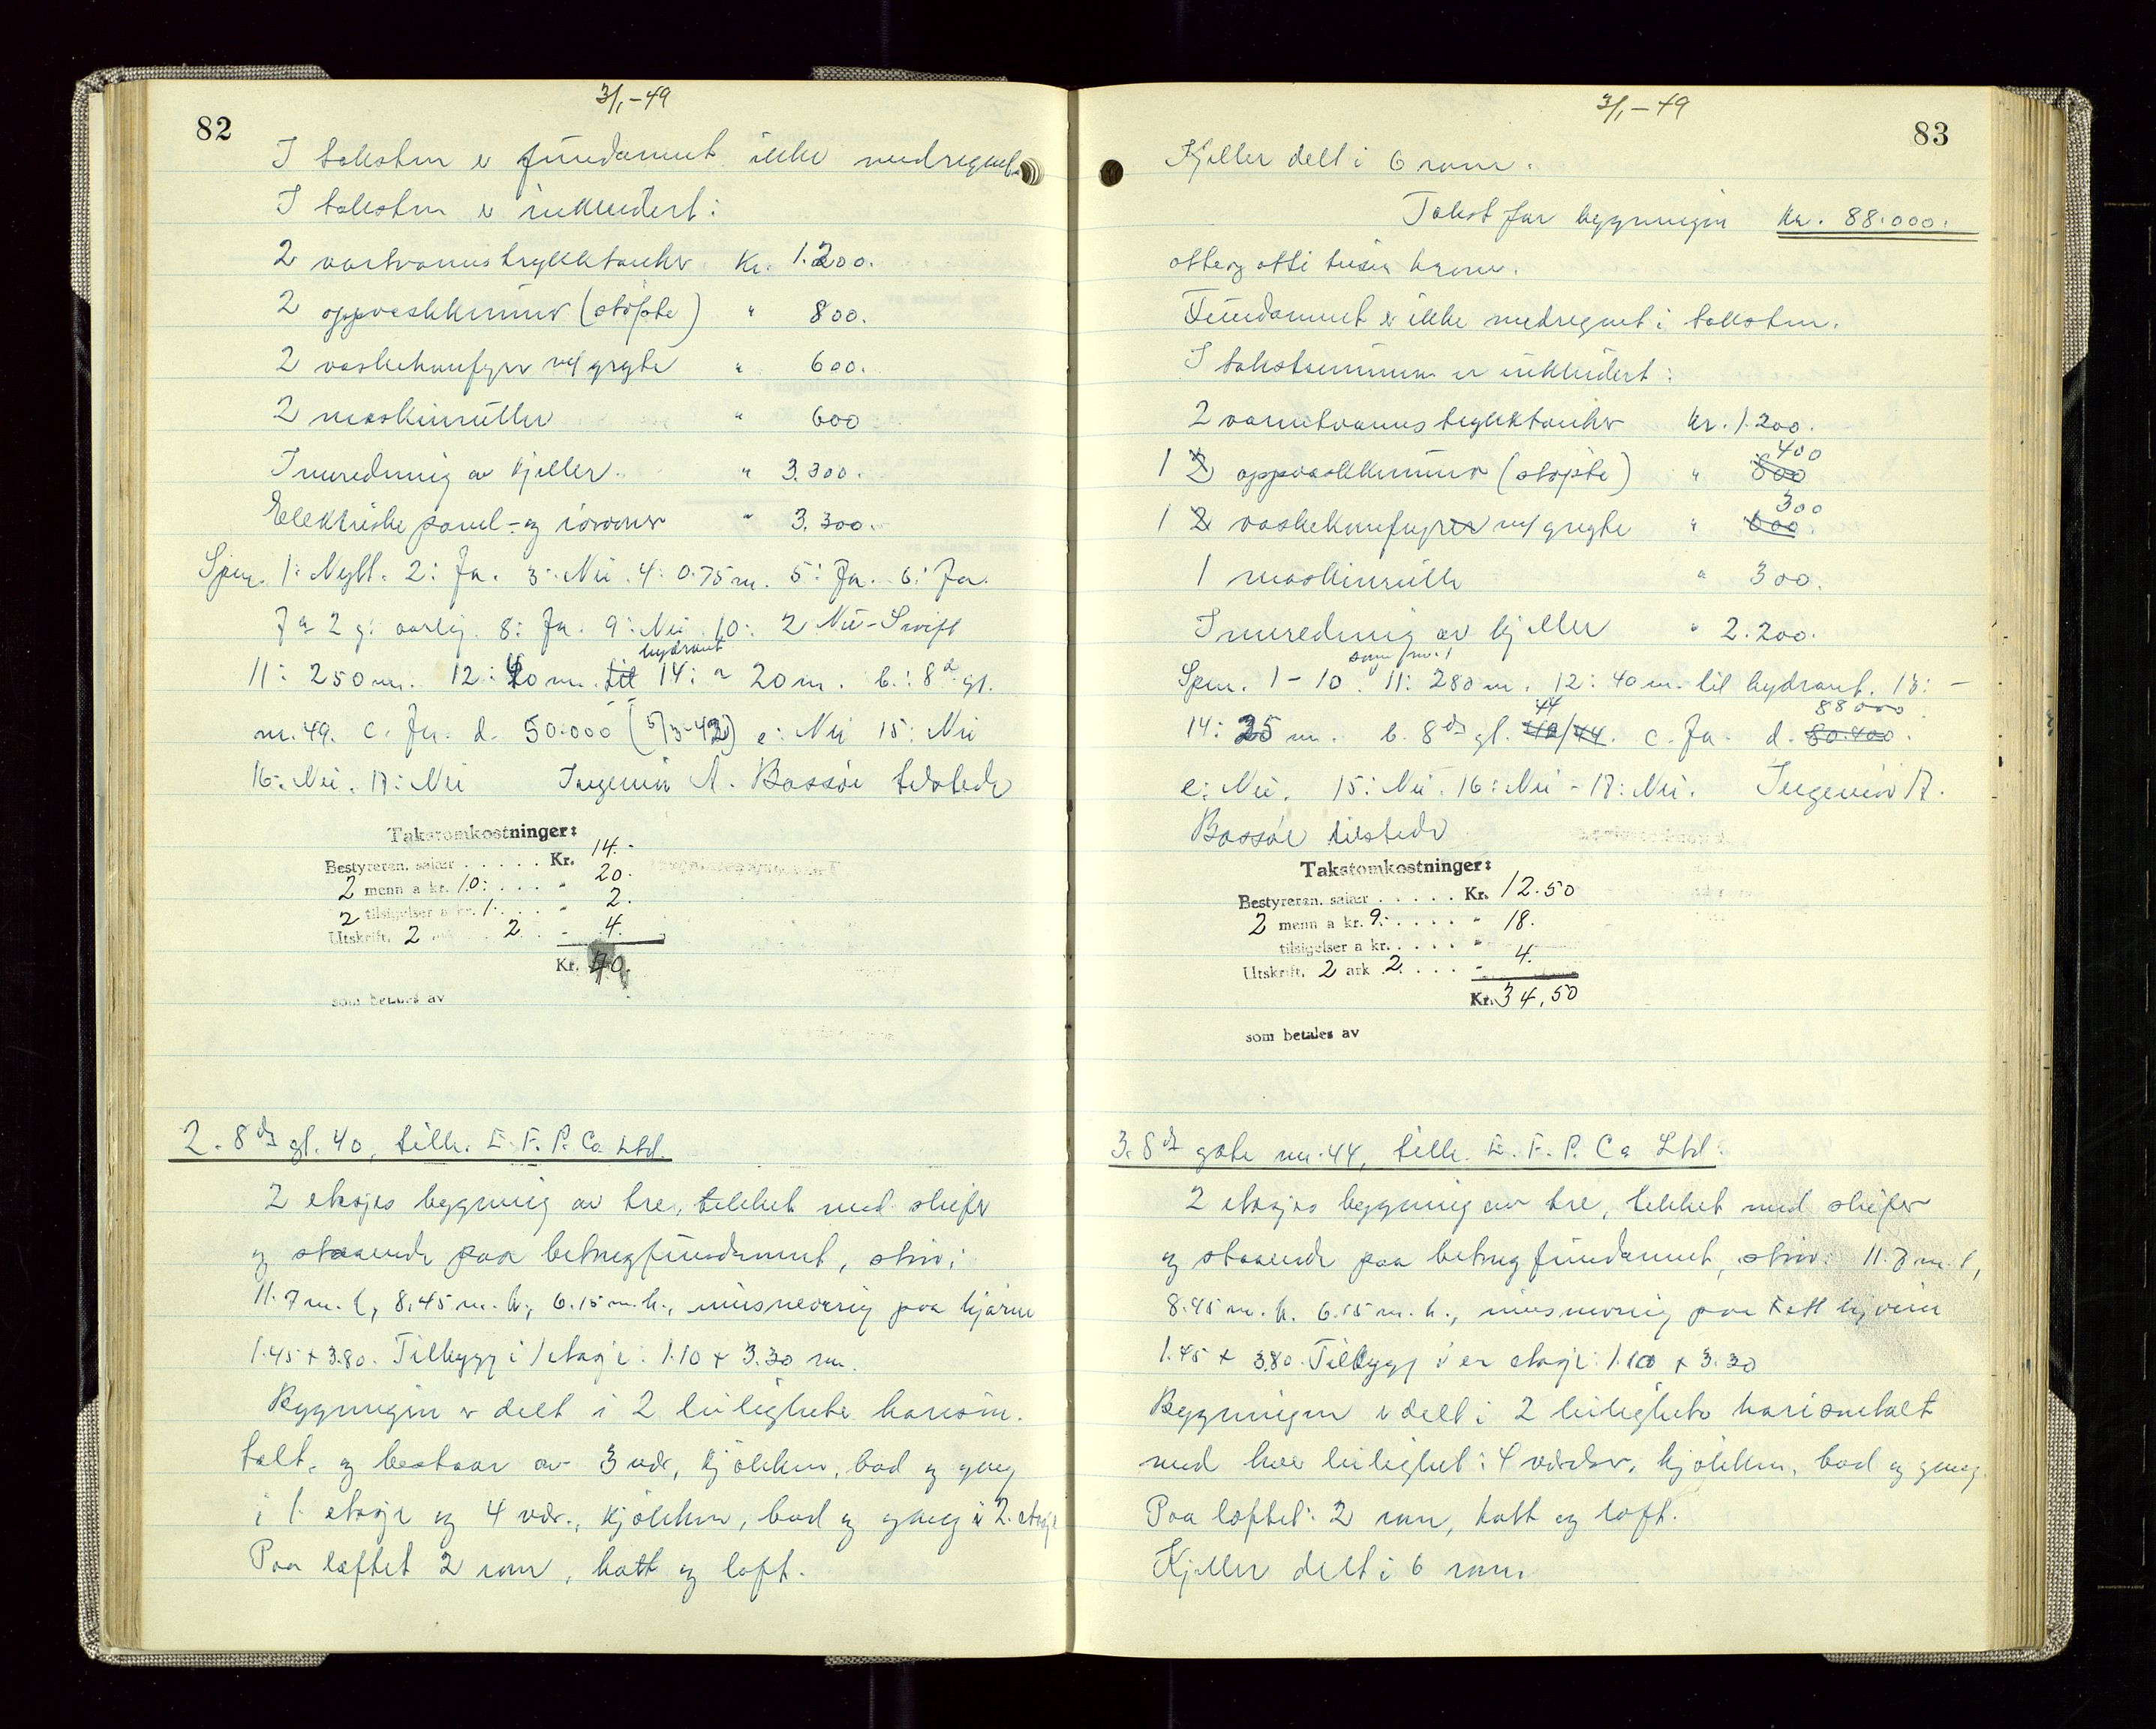 3/1-49
82
I taksten er fundament ikke medregnet.
I taksten er inkludert:
2 varmtvannstrykktanker Kr. 1.200.
2 oppvaskkummer (støpte) " 800.
2 vaskekumfyrer m/ gryte " 600.
2 maskinruller " 600
Innredning av kjeller. " 3.300.
Elektriske panel- og " 3.300.
Spm. 1: Nytt. 2: Ja. 3: Nei. 4: 0.75 m. 5: Ja. 6: Ja.
7 2 g: aarlig. 8: Ja. 9: Nei 10: 2 Nu-Swift
hydrant
11: 250 m. 12: 40 m. til 14: a 20 m. b.: 8d gt.
nr. 49. c. Ja. d. 50.000 (5/3-42) e: Nei 15: Nei
16: Nei. 17: Nei Ingeniør A. Bassøe tilstede
Takstomkostninger:
Bestyreren, salær ..... Kr. 14.-
2 menn a kr. 10: .... " 20.
2 tilsigelser a kr. 1. ... " 2.
Utskrift, 2 2 - 4.
Kr. 40.
som betales av
2. 8de gt. 40, tilh. E. F. P. Co Ltd.
2 etasjes bygning av tre, tekket med skifer
og staaende paa betongfundament, stør.:
11.7 m. l, 8.45 m. br, 6.15 m. h., minus neverig paa hjørne
1.45 x 3.80. Tilbygg i 1 etasje: 1.10 x 3.30 m.
Bygningen er delt i 2 leiligheter horison-
talt, og bestaar av 3 vær, kjøkken, bad og gang
i 1. etasje og 4 vær., kjøkken, bad og gang i 2. etasje
Paa loftet 2 rom, kott og loft.
3/1-49
83
Kjeller delt i 6 rom.
Takst for bygningen kr. 88.000.
otteog otti tusen kroner.
Fundament er ikke medregnet i taksten.
I takstsummen er inkludert:
2 varmtvannstrykktanker kr. 1.200.
400
1 2 oppvaskkummer (støpte) " 800
300
1 2 vaskekumfyrer m/ gryte " 600.
1 maskinrulle " 300.
Innredning av kjeller " 2.200.
som nr. 1
Spm. 1-10. 11: 280 m. 12: 40 m. til hydrant. 13: -
44 88000
14: 35 m. b. 8de gt. 42/44. c. Ja. d. 80.400.
e: Nei. 15: Nei. 16: Nei - 17: Nei. Ingeniør A.
Bassøe tilstede
Takstomkostninger:
Bestyreren, salær ..... Kr. 12.50
2 menn a kr. 9: .... " 18.
tilsigelser a kr. .... "
Utskrift, 2 ark 2. ... - 4.
Kr. 34,50
som betales av
3. 8de gate nr. 44, tilh. E. F. P. Co Ltd:
2 etasjes bygning av tre, tekket med skifer
og staaende paa betongfundament, stør: 11.7 m. l,
8.45 m. br. 6.15 m. h., minus neverig paa et hjørne
1.45 x 3.80. Tilbygg i en etasje: 1.10 x 3.30
Bygningen er delt i 2 leiligheter horisontalt
med hver leilighet: 4 værelser, kjøkken, bad og gang.
Paa loftet: 2 rom, kott og loft.
Kjeller delt i 6 rom